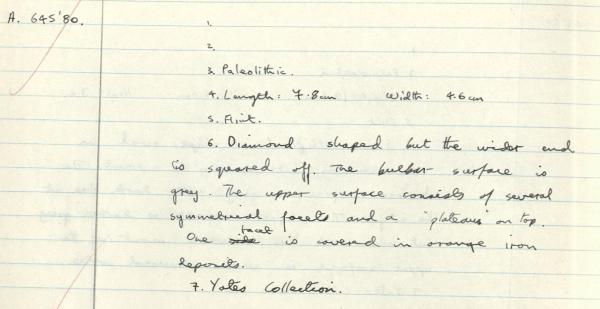 A. 645'80.
1.
2.
3. Paleolithic.
4. Length: 7.8cm Width: 4.6cm
5. Flint.
6. Diamond shaped but the wider end
is squared off. The bulbar surface is
grey. The upper surface consists of several
symmetrical facets and a 'plateau' on top.
One side facet is covered in orange iron
deposits.
7. Yates Collection.